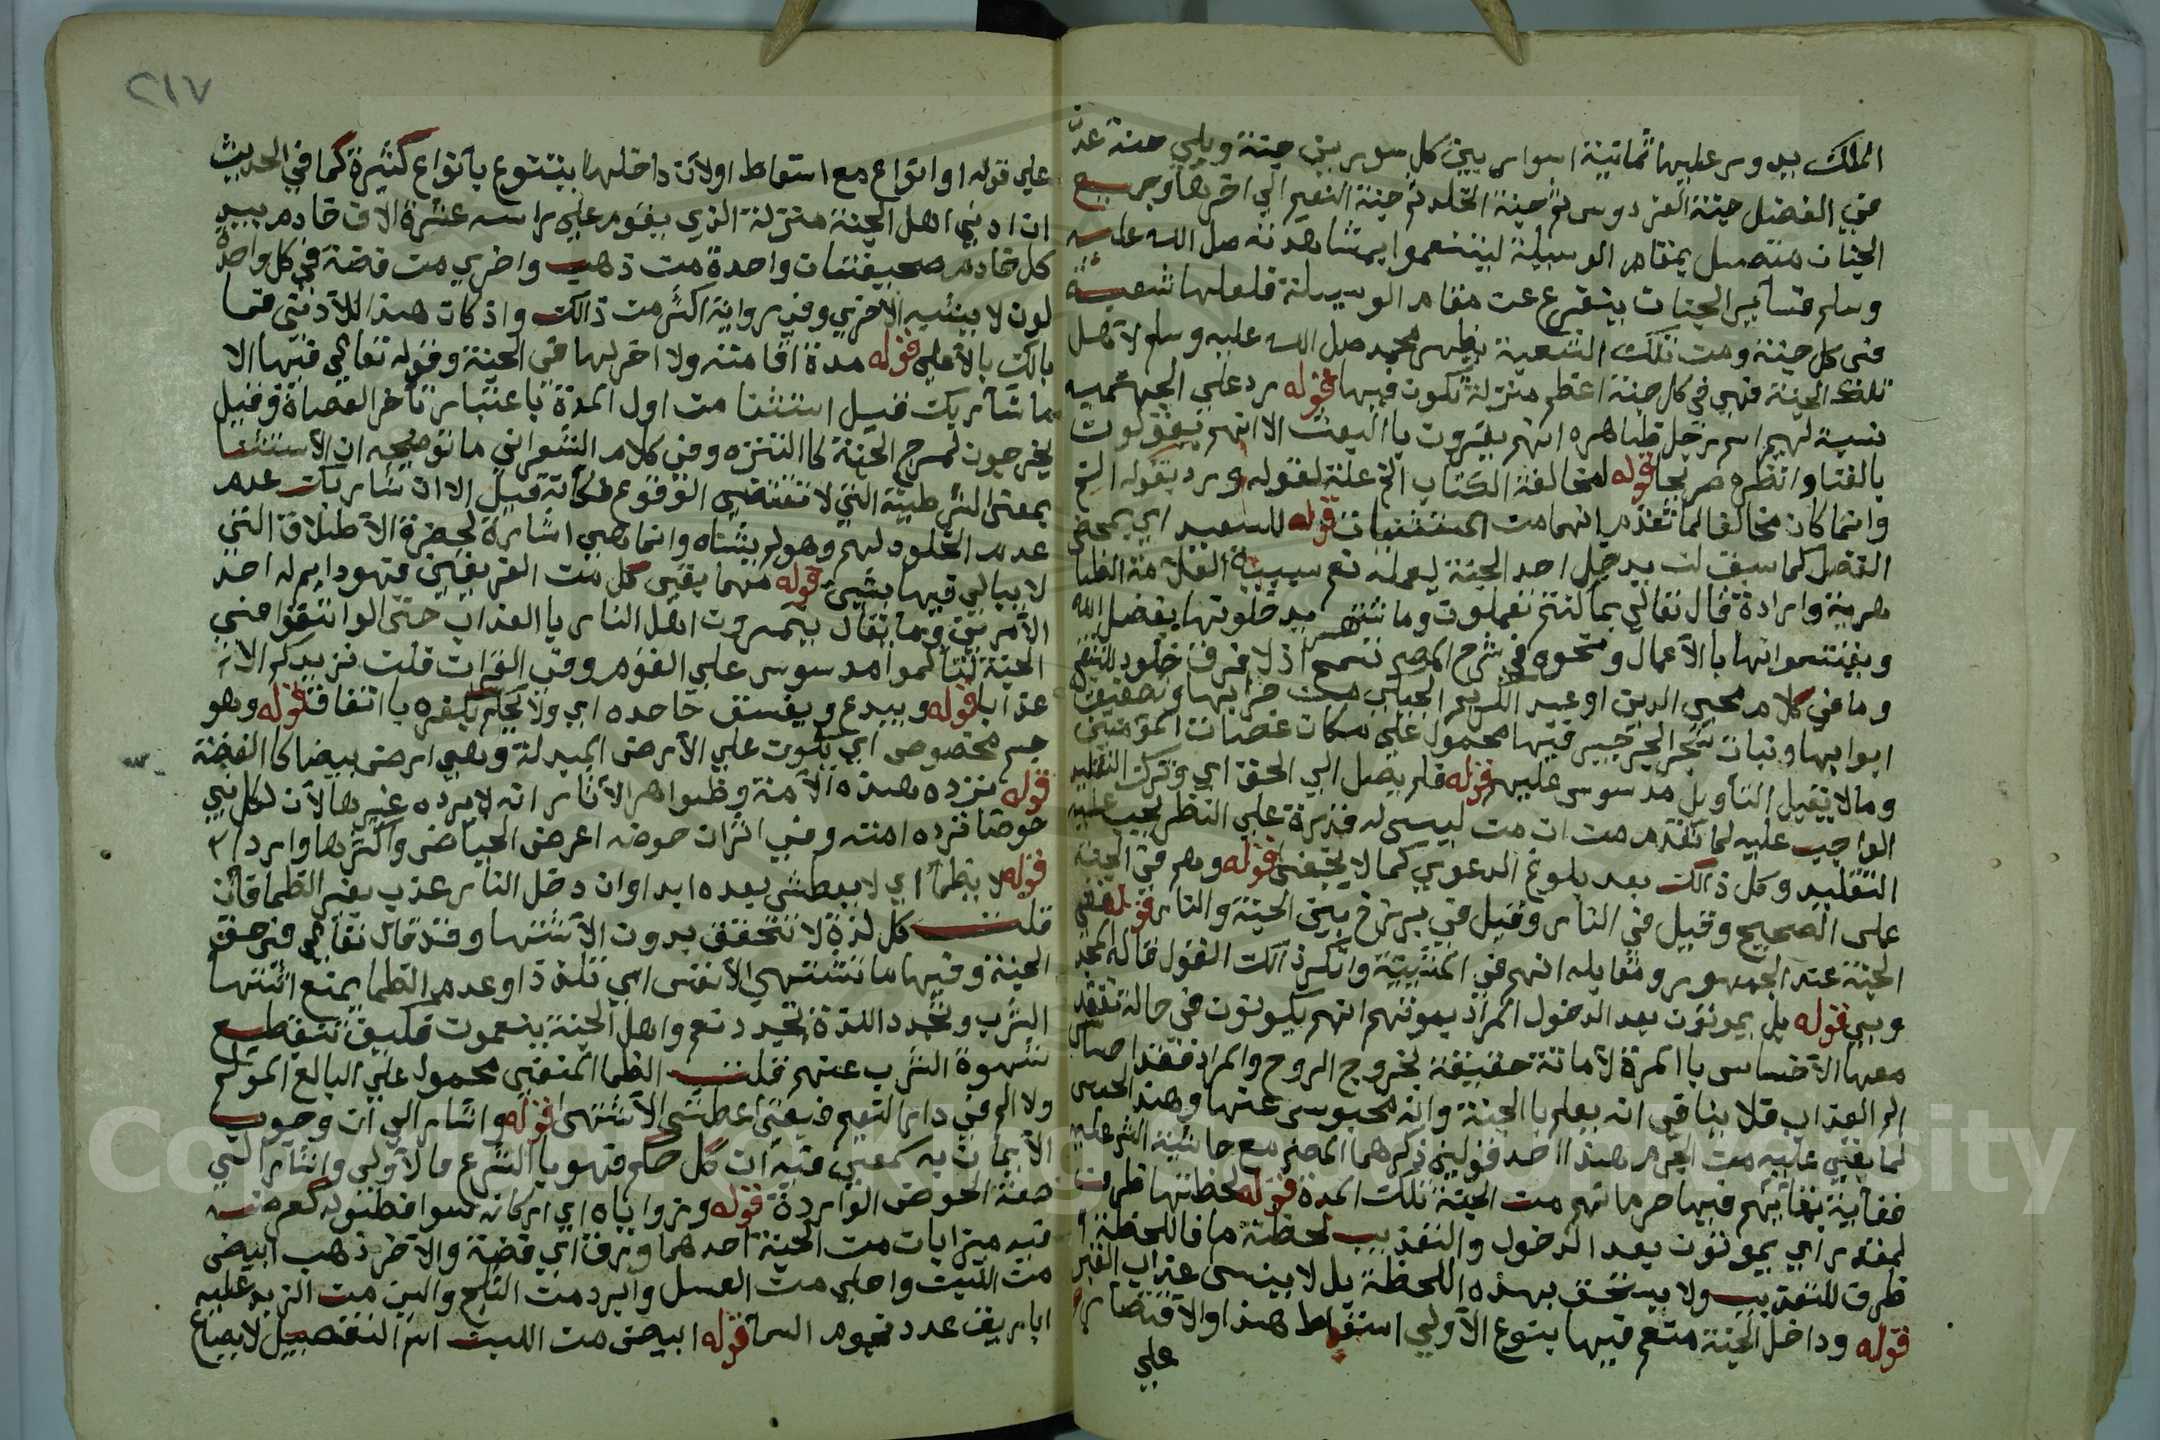 الملك يدور عليها ثمانية اسوار بين كل سورين جنة ويلي جنة عدن
في الفضل جنة الفردوس ثم جنة الخلد ثم جنة النعيم الي اخرها وجميع
الجنات متصل بمقام الوسيلة ليتنعموا بمشاهدته صلي الله عليه
وسلم فسائر الجنات يتفرع عن مقام الوسيلة فلعلها شعبة
في كل جنة ومن تلك الشعبة يظهر محمد صلي الله عليه وسلم لاهل
تلك الجنة فهي في كل جنة اعظم منزلة تكون فيها قوله رد علي الجهمية
نسبة لجهم اسم رجل ظاهره انهم يقرون بالبعث الا انهم يقولون
بالفنا وانظره صريحا قوله لمخالفة الكتاب الخ علة لقوله ورد بقوله الخ
وانما كان مخالفا لما تقدم انهما من المستثنيات قوله للسعيد اي بمحض
الفضل كما سبق لن يدخل احد الجنة بعمله نعم سببية العلامة الظا
هرية وارادة قال تعالي بما كنتم تعملون وما يدخلونها بفضل الله
ويقتسمونها بالاعمال ونحوه في شرح المصنف اذ لا فرق خلود للشقي
وما في كلام محيي الدين او عبد الكريم الجيلي من خرابها وتصفيق
ابوابها ونبات شجر الجرجير فيها محمول علي مكان عصاة المؤمنين
وما لا يقبل التاويل مدسوس عليهم قوله فلم يصل الي الحق اي وترك التقليد
الواجب عليه لما تقدم من ان من ليس له قدرة علي النظر يجب عليه
التقليد وكل ذلك بعد بلوغ الدعوي كما لا يخفي قوله وهم في الجنة
علي الصحيح وقيل في النار وقيل في برزخ بين الجنة والنار قوله ففي
الجنة عند الجمهور ومقابله انهم في المشيئة وانكر ذلك القول قاله المجد
وبي قوله بل يموتون بعد الدخول المراد بموتهم انهم يكونون في حالة تفقد
معها الاحساس بالمرة لا اماتة حقيقة بخروج الروح والمراد فقد احساس
الم العذاب فلا ينافي انه يعلم بالجنة وانه محبوس عنها وهذا الحبس
لما بقي عليه من الجرم هذا احد قولين ذكرهما المصنف مع حاشية الشرح عليه
فغاية بقائهم فيها حرمانهم من الجنة تلك المدة قوله لحظتها ظرف
لمقدر اي يموتون بعد الدخول والتعذيب لحظة ما فاللحظة
ظرف للتعذيب ولا يستخف بهذه اللحظة بل لا ينسي عذاب القبر
قوله وداخل الجنة متنعم فيها بنوع الاولي اسقاط هذا والاقتصار
علي
٢١٧
علي قوله او انواع مع اسقاط او لان داخلها يتنوع بانواع كثيرة كما في الحديث
ان ادني اهل الجنة منزلة الذي يقوم علي راسه عشرة الاف خادم بيد
كل خادم صحيفتان واحدة من ذهب واخري من فضة في كل واحدة
لون لا يشبه الاخري وفي رواية اكثر من ذلك واذ كان هذا للادني فما
بالك بالاعلي قوله مدة اقامته ولا اخر لها في الجنة وقوله تعالي فيها الا
ما شاء ربك قيل استثنا من اول المدة باعتبار تاخر العصاة وقيل
يخرجون لمرج الجنة كالتنزه وفي كلام الشعراني ما توضيحه ان الاستثنا
بمعني الشرطية التي لا تقتضي الوقوع فكانه قيل الا ان شاء ربك عدم
عدم الخلود لهم وهو لم يشاه وانما هي اشارة لحضرة الاطلاق التي
لا يبالي فيها بشيء قوله مهما بقي كل من الفريقين فهو دايم له احد
الامرين وما يقال يتمرن اهل النار بالعذاب حتي لو القوا في
الجنة لتالموا مدسوس علي القوم وفي القران فلن نزيدكم الا
عذابا قوله ويبدع ويفسق جاحده اي ولا يحكم بكفره باتفاق قوله وهو
جسم مخصوص اي يكون علي الارض المبدلة وهي ارض بيضا كالفضة
قوله ترده هذه الامة وظواهر الاثار انه لا يرده غيرها لان لكل نبي
حوضا ترده امته وفي اثران حوضه اعرض الحياض واكثرها واردا
قوله لا يظمأ اي لا يعطش بعده ابدا وان دخل النار عذب بغير الظما فان
قلت كل لذة لا تتحقق بدون الاشتها وقد قال تعالي في حق
الجنة وفيها ما تشتهي الانفس اي تلتذ او عدم الظما يمنع اشتها
الشرب وتجدد اللذة بتجدد نعم واهل الجنة ينعمون فكيف تنقطع
شهوة الشرب عنهم قلت الظما المنفي محمول علي البالغ المؤلم
ولا الم في دار النعيم فيعني اعطش الاشتهي قوله واشار الي ان وجوب
الايمان به سمعي فيه ان كل حكم فهو بالشرع فالاولي واشار الي
صفة الحوض الواردة قوله وزواياه اي اركانه سوا فطوله كعرضه
فيه ميزابان من الجنة احدهما ورق اي فضة والاخر ذهب ابيض
من اللبن واحلي من العسل وابرد من الثلج والين من الزبد عليه
اباريق عدد نجوم السما قوله ابيض من اللبن اسم التفضيل لا يصاغ